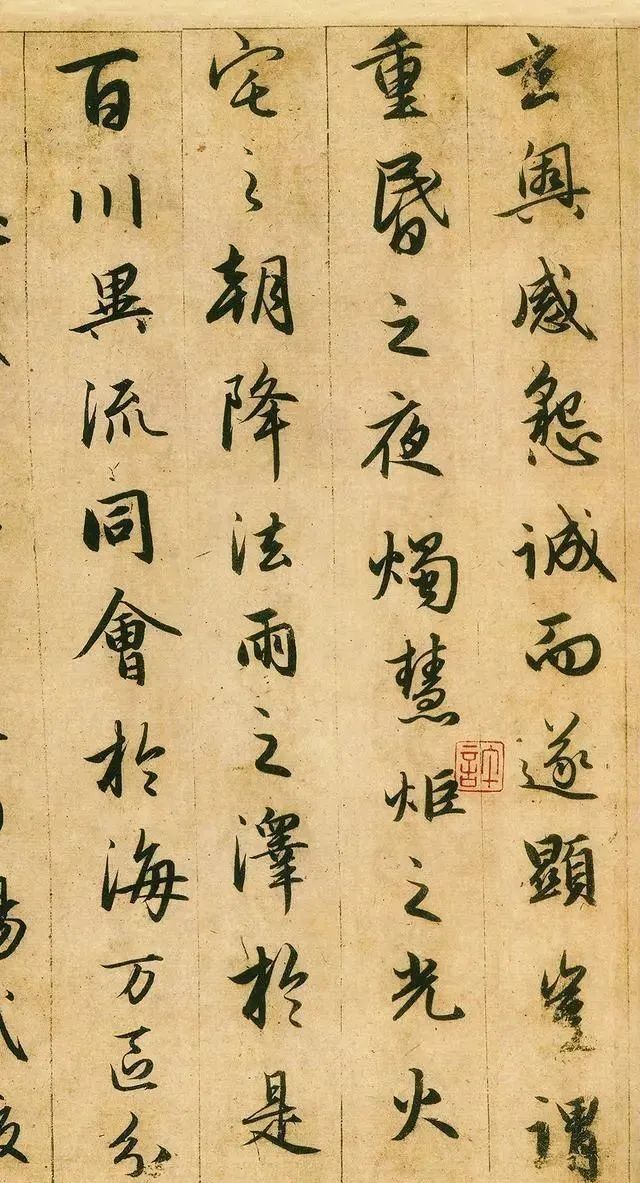 玄奧感懇誠而遂顯豈謂
重昬之夜燭慧炬之光火
宅之朝降法雨之澤於是
百川異流同會於海万區分